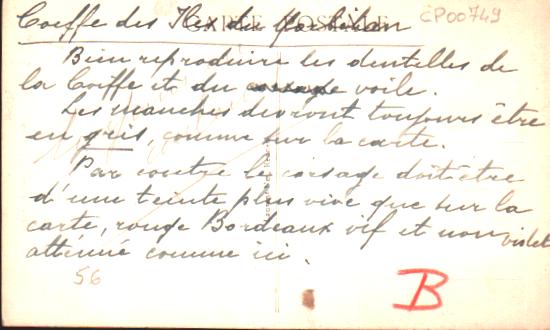 Coiffe des Iles du Morbihan
CARTE POSTALE
CP00749
Bien reproduire les dentelles de
la Coiffe et du corsage voile.
Les manches devront toujours être
en gris, comme sur la carte.
Par contre le corsage doit être
d'une teinte plus vive que sur la
carte, rouge Bordeaux vif et non violet
atténué comme ici.
56
B